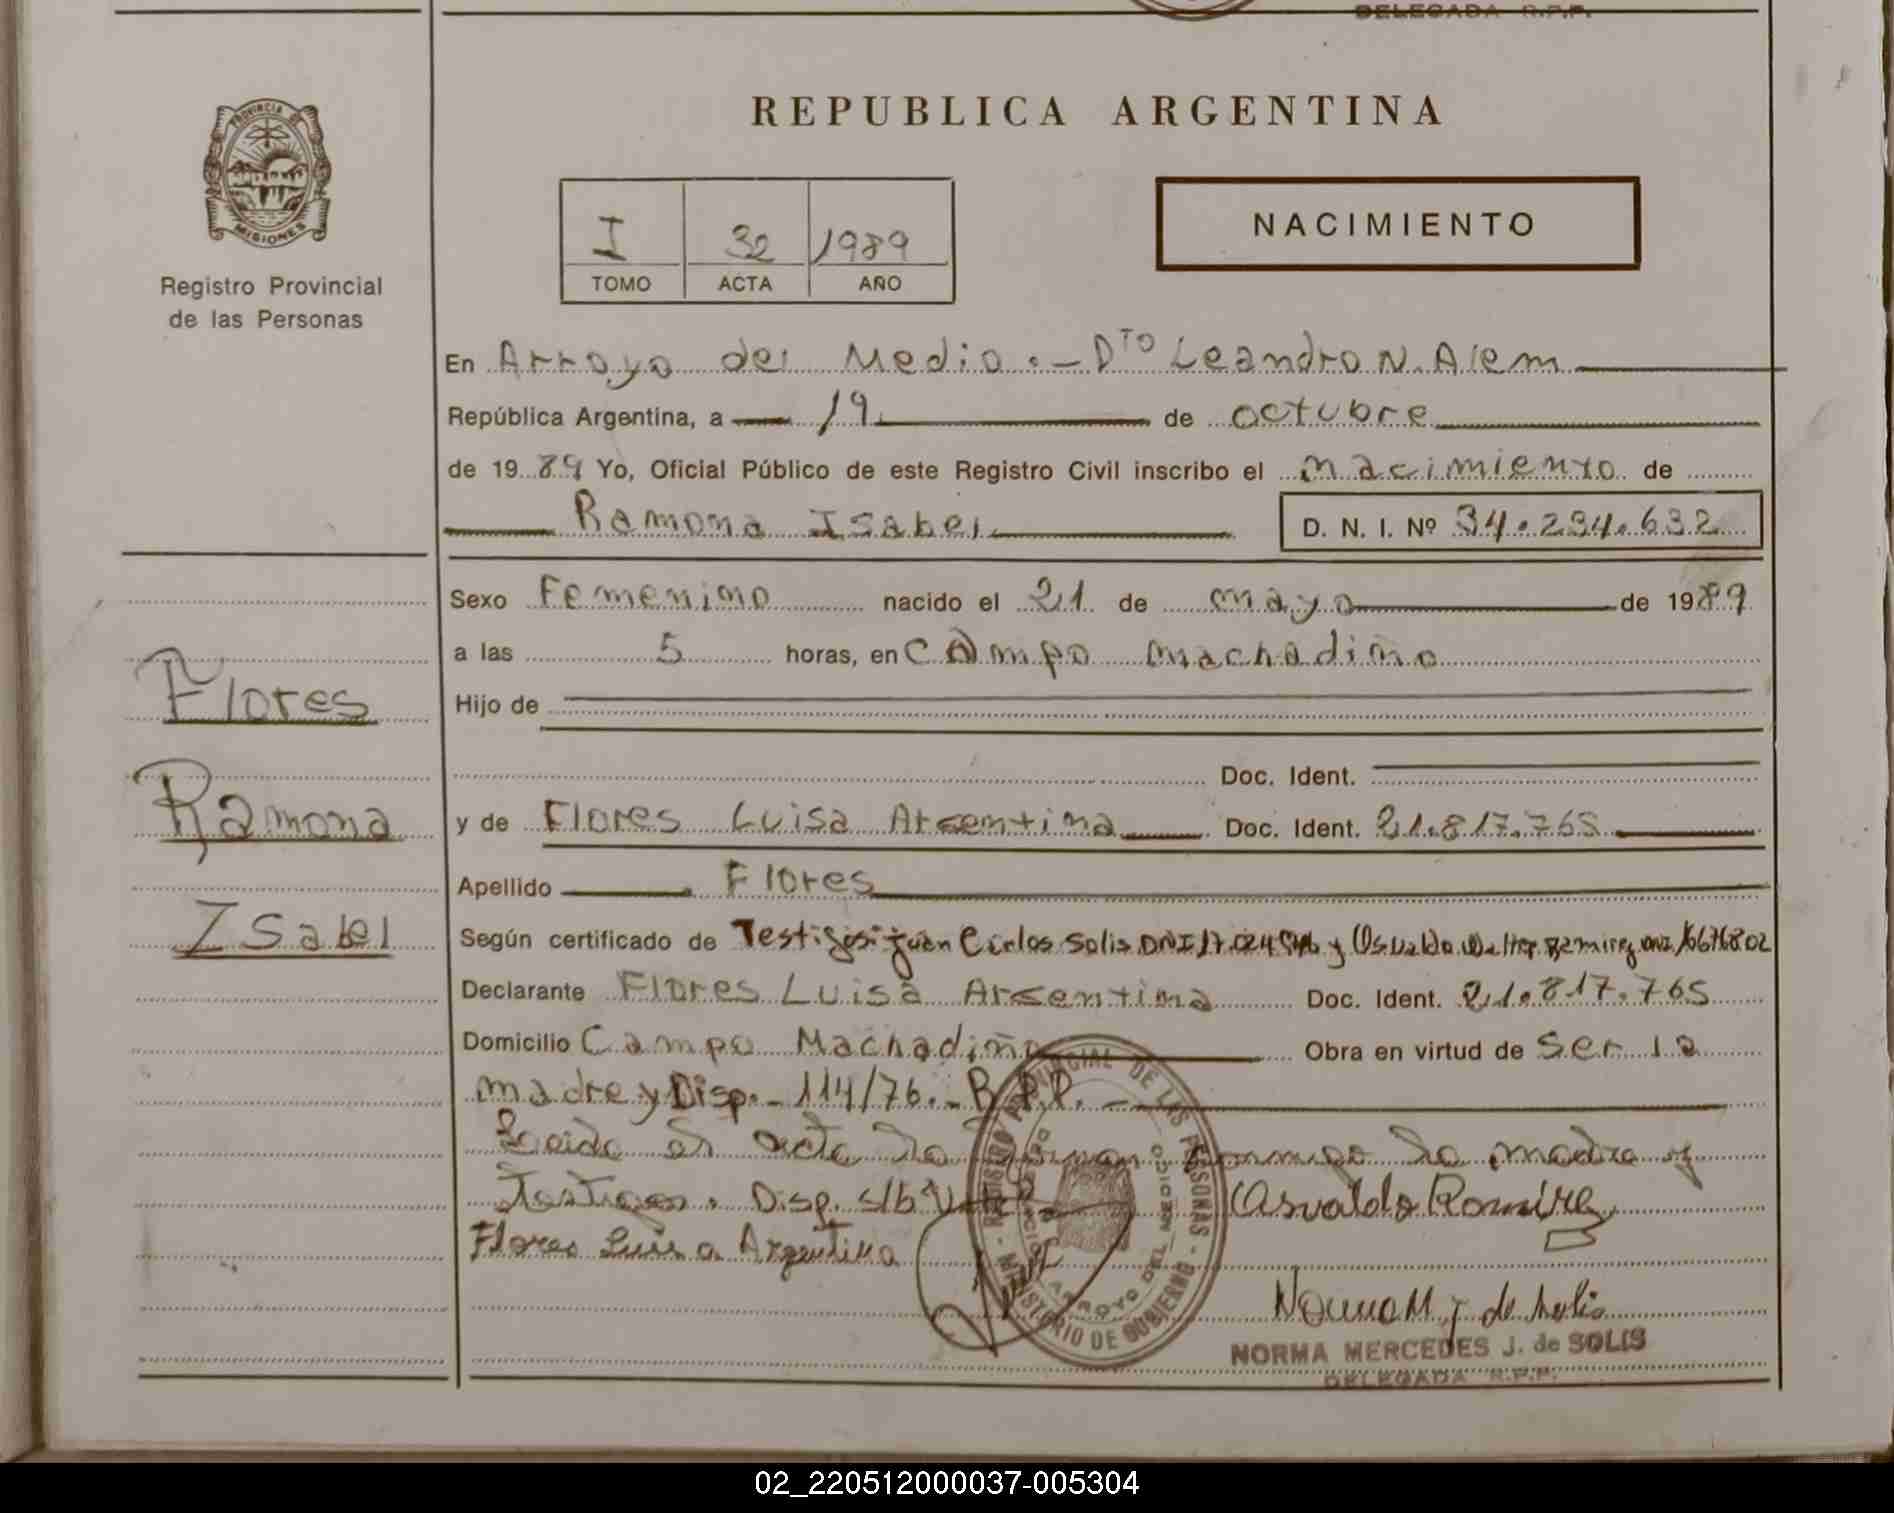 DELEGADA R.P.P.
REPUBLICA ARGENTINA
PROVINCIA DE
MISIONES
Registro Provincial
de las Personas
I 32 1989
TOMO ACTA AÑO
NACIMIENTO
En Arroyo del Medio.- Dto Leandro N. Alem
República Argentina, a 19 de octubre
de 1989 Yo, Oficial Público de este Registro Civil inscribo el nacimiento de
Ramona Isabel
D. N. I. Nº 34.234.632
Sexo Femenino nacido el 21 de mayo de 1989
a las 5 horas, en Campo Machadiño
Hijo de
Doc. Ident.
y de Flores Luisa Argentina Doc. Ident. 21.817.765
Apellido Flores
Según certificado de Testigos: Juan Carlos Solis DNI 17.024 y Osvaldo Walter Ramirez DNI 16676802
Declarante Flores Luisa Argentina Doc. Ident. 21.817.765
Domicilio Campo Machadiño Obra en virtud de ser la
madre y Disp.- 114/76.- R.P.P.-
Leida el acta la firman conmigo la madre y
Testigos. Disp. s/b
Osvaldo Ramirez
Flores Luisa Argentina
Flores
Ramona
Isabel
REGISTRO PROVINCIAL DE LAS PERSONAS - MINISTERIO DE GOBIERNO
ARROYO DEL MEDIO
Norma M J de Solis
NORMA MERCEDES J. de SOLIS
DELEGADA R.P.P.
02_220512000037-005304